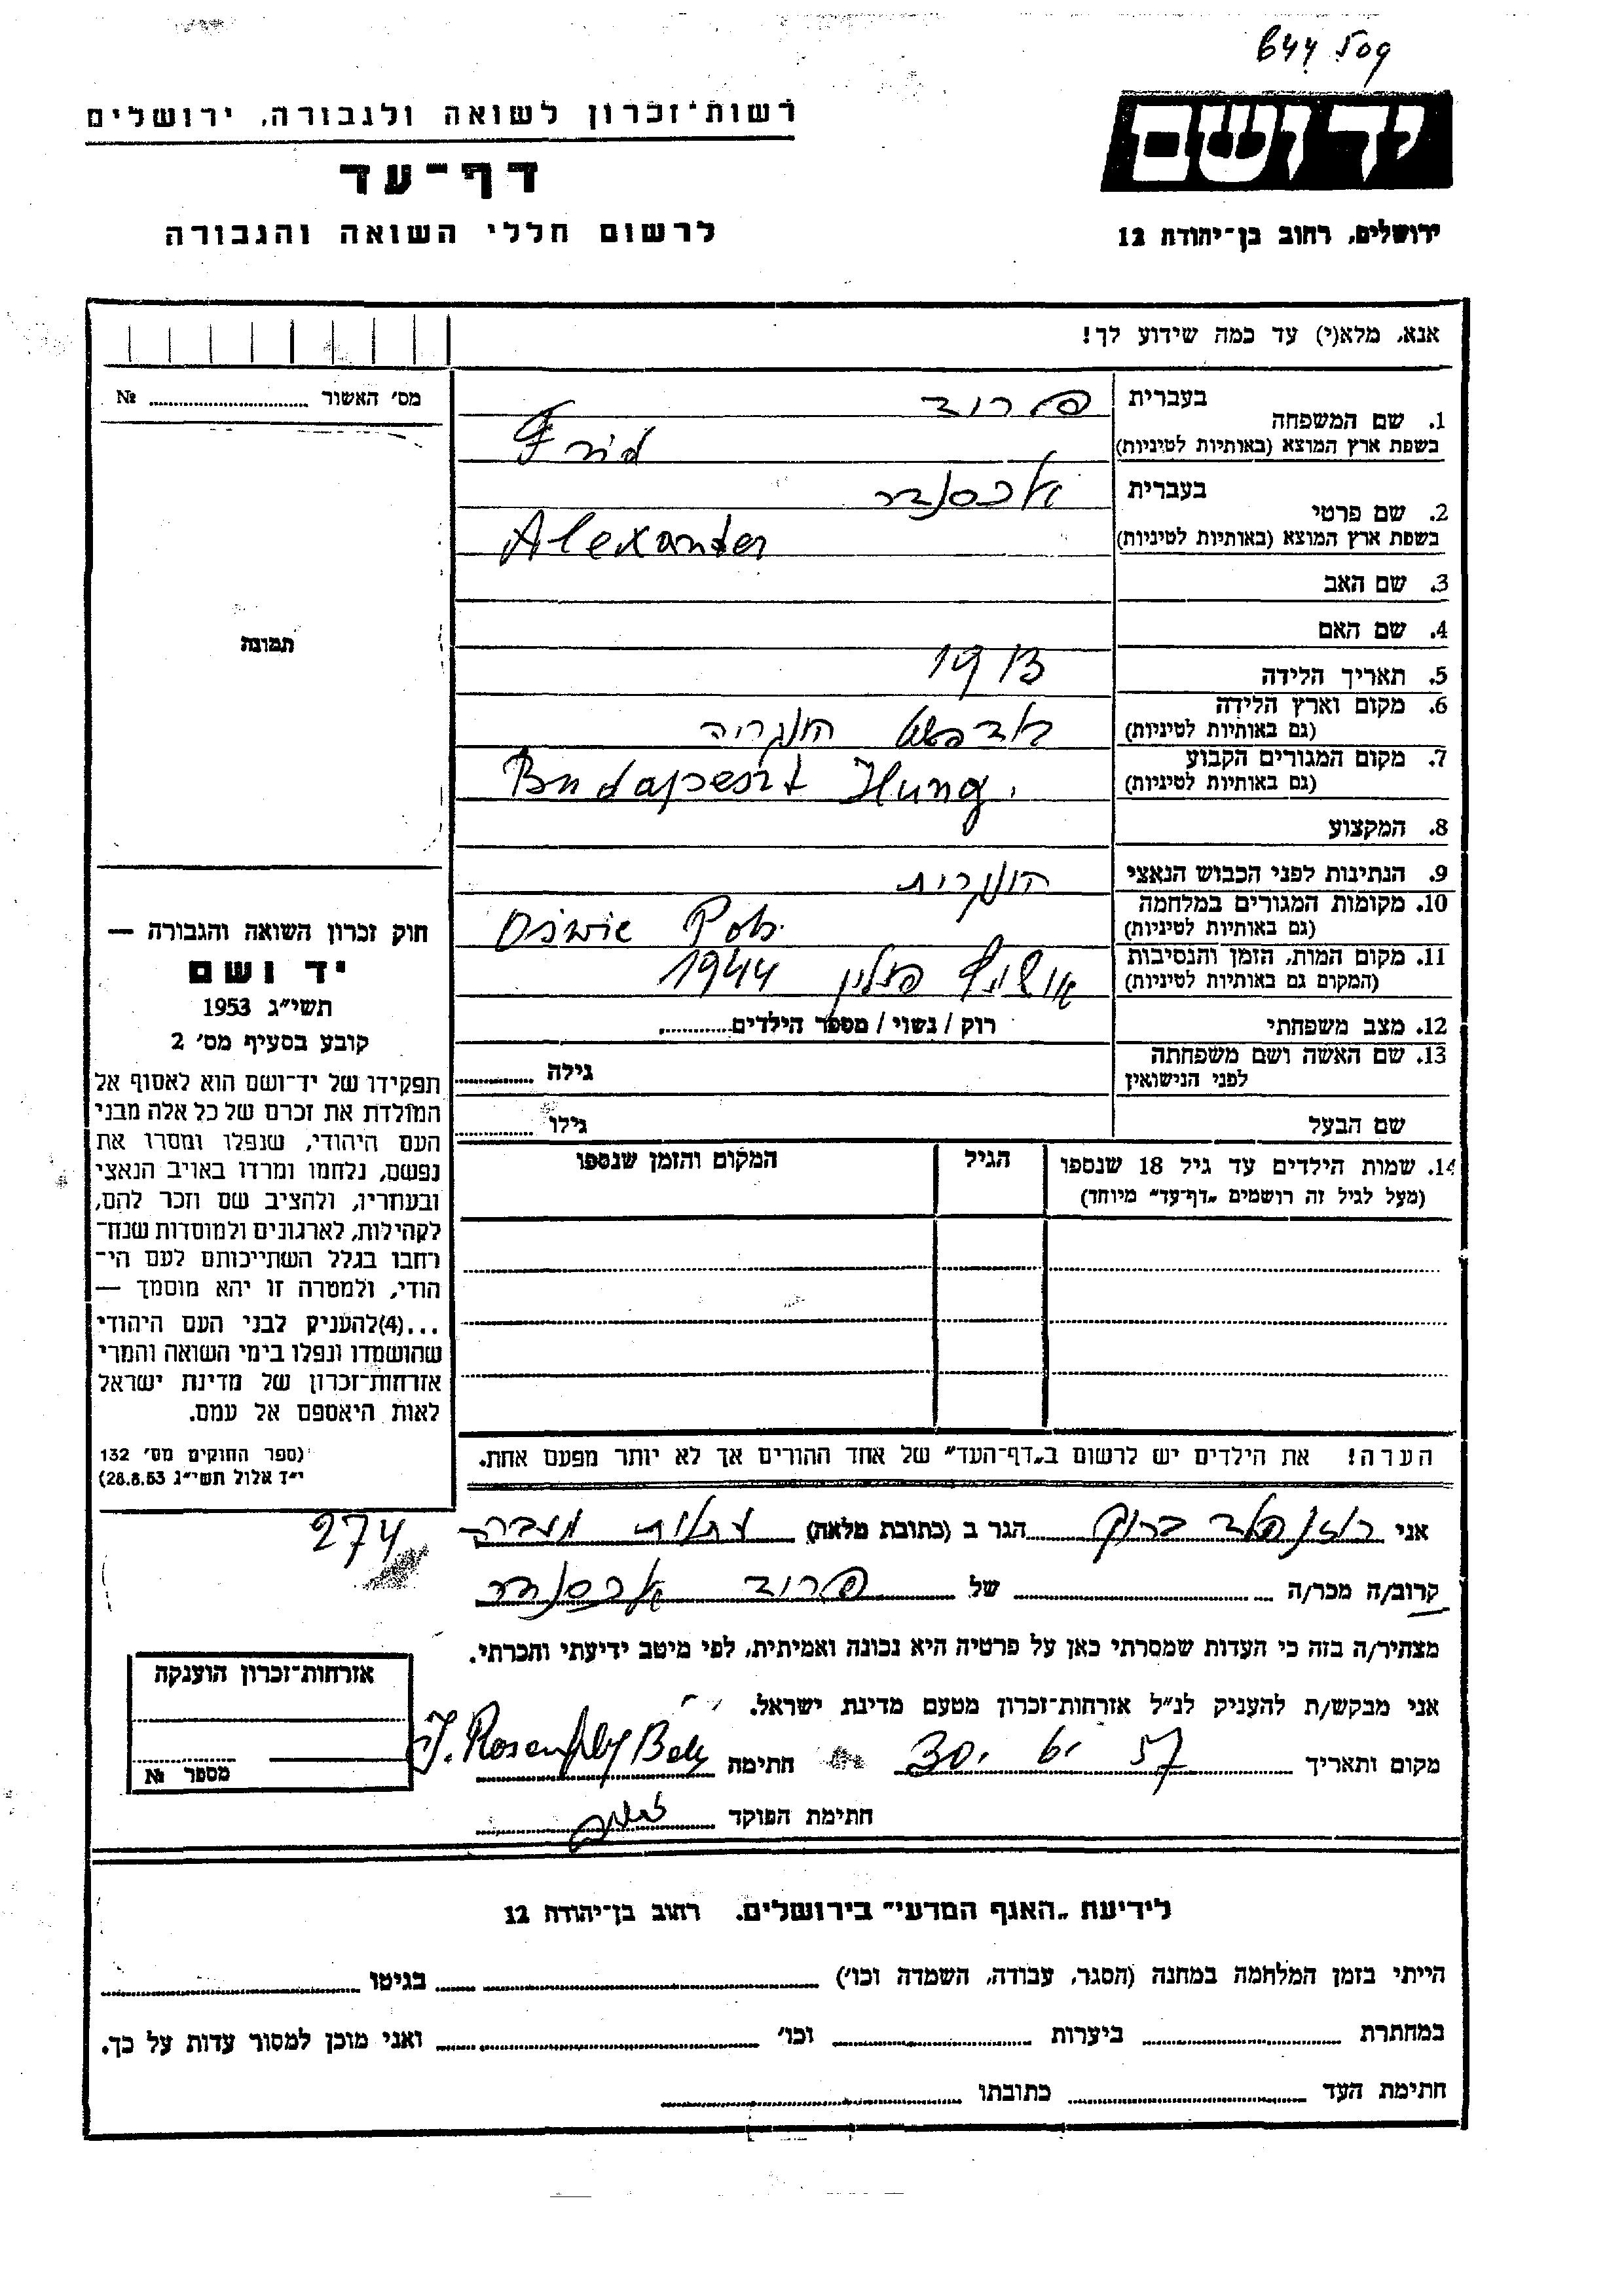 644 509
יד ושם
רשות־זכרון לשואה ולגבורה, ירושלים
דף־עד
לרשום חללי השואה והגבורה
ירושלים, רחוב בן־יהודה 12
אנא, מלא(י) עד כמה שידוע לך!
מס׳ האשור ........ №
תמונה
חוק זכרון השואה והגבורה —
יד ושם
תשי״ג 1953
קובע בסעיף מס׳ 2
תפקידו של יד־ושם הוא לאסוף אל
המולדת את זכרם של כל אלה מבני
העם היהודי, שנפלו ומסרו את
נפשם, נלחמו ומרדו באויב הנאצי
ובעוזריו, ולהציב שם וזכר להם,
לקהילות, לארגונים ולמוסדות שנח־
רחבו בגלל השתייכותם לעם הי־
הודי, ולמטרה זו יהא מוסמך —
...(4)להעניק לבני העם היהודי
שהושמדו ונפלו בימי השואה והמרי
אזרחות־זכרון של מדינת ישראל
לאות היאספם אל עמם.
(ספר החוקים מס׳ 132
י״ז אלול תשי״ג 28.8.53)
1. שם המשפחה
בעברית פריד
בשפת ארץ המוצא (באותיות לטיניות) Frid
2. שם פרטי
בעברית אלכסנדר
בשפת ארץ המוצא (באותיות לטיניות) Alexander
3. שם האב
4. שם האם
5. תאריך הלידה 1913
6. מקום וארץ הלידה
(גם באותיות לטיניות) בודפשט הונגריה
7. מקום המגורים הקבוע
(גם באותיות לטיניות) Budapeszt Hung.
8. המקצוע
9. הנתינות לפני הכבוש הנאצי הונגרית
10. מקומות המגורים במלחמה
(גם באותיות לטיניות) Oświe Pol.
11. מקום המות, הזמן והנסיבות
(המקום גם באותיות לטיניות) אושוויץ פולין 1944
12. מצב משפחתי רוק / נשוי / מספר הילדים........
13. שם האשה ושם משפחתה
לפני הנישואין גילה ........
שם הבעל גילו ........
14. שמות הילדים עד גיל 18 שנספו הגיל המקום והזמן שנספו
(מעל לגיל זה רושמים „דף־עד״ מיוחד)
הערה! את הילדים יש לרשום ב„דף־העד״ של אחד ההורים אך לא יותר מפעם אחת.
אני רוזנפלד ברוך הגר ב (כתובת מלאה) עתלית מעברה
274
קרוב/ה מכר/ה ........ של פריד אלכסנדר
מצהיר/ה בזה כי העדות שמסרתי כאן על פרטיה היא נכונה ואמיתית, לפי מיטב ידיעתי והכרתי.
אני מבקש/ת להעניק לנ״ל אזרחות־זכרון מטעם מדינת ישראל.
מקום ותאריך 30. 6. 57 חתימה
חתימת הפוקד
אזרחות־זכרון הוענקה
מספר №
לידיעת „האגף המדעי״ בירושלים. רחוב בן־יהודה 12
הייתי בזמן המלחמה במחנה (הסגר, עבודה, השמדה וכו׳) ........ בגיטו ........
במחתרת ........ ביערות ........ וכו׳ ........ ואני מוכן למסור עדות על כך.
חתימת העד ........ כתובתו ........